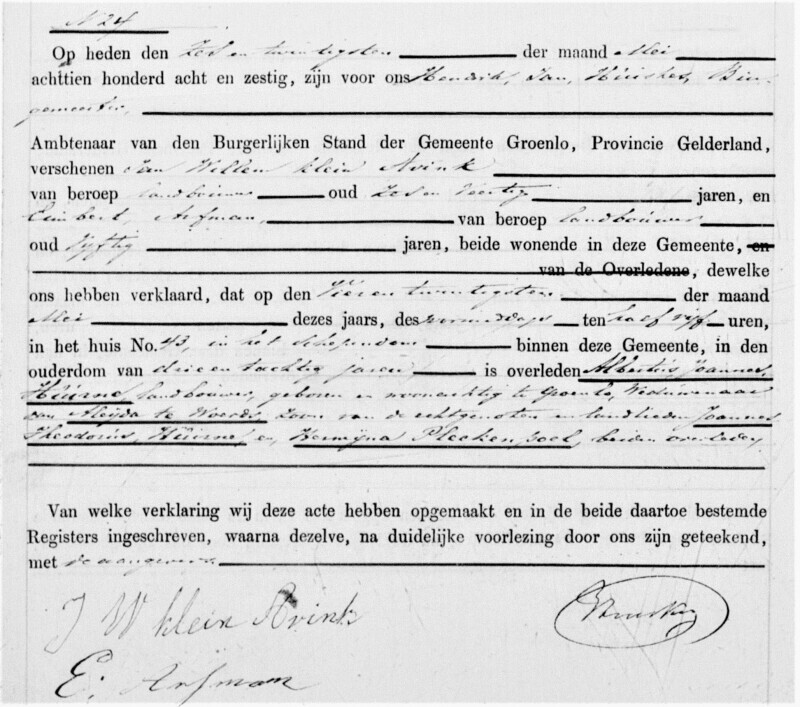 N 24
Op heden den zes en twintigsten der maand Mei
achttien honderd acht en zestig, zijn voor ons Hendrik, Jan, Huisken, Bur-
gemeester,
Ambtenaar van den Burgerlijken Stand der Gemeente Groenlo, Provincie Gelderland,
verschenen Jan Willem klein Avink
van beroep landbouwer oud zes en veertig jaren, en
Engbert, Arfman, van beroep landbouwer
oud vijftig jaren, beide wonende in deze Gemeente, en
van de Overledene, dewelke
ons hebben verklaard, dat op den Vier en twintigsten der maand
Mei dezes jaars, des voormiddags ten half vijf uren,
in het huis No. 43, in het Schependom binnen deze Gemeente, in den
ouderdom van drie en tachtig jaren is overleden Albertus Joannes
Hüirne, landbouwer, geboren en woonachtig te Groenlo, Weduwenaar
van Aleijda te Woerds, Zoon van de echtgenoten en landlieden Joannes
Theodorus, Hüirne, en, Hermijna Pleckenpoel, beiden overleden
Van welke verklaring wij deze acte hebben opgemaakt en in de beide daartoe bestemde
Registers ingeschreven, waarna dezelve, na duidelijke voorlezing door ons zijn geteekend,
met de aangevers
J W klein Avink
E. Arfman